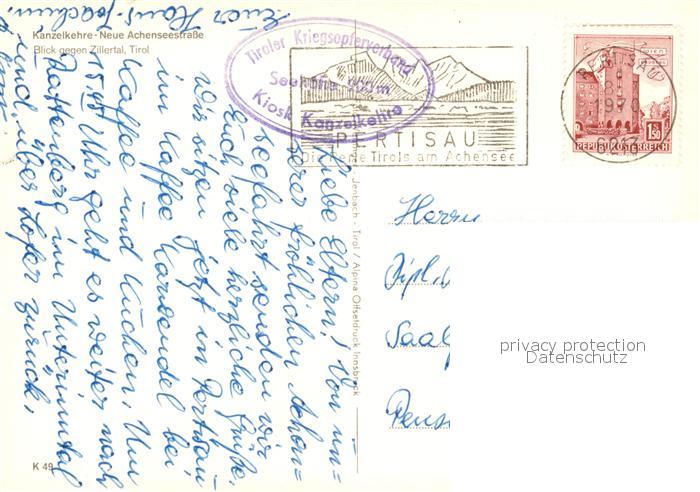 Kanzelkehre - Neue Achenseestraße
Blick gegen Zillertal, Tirol
Tiroler Kriegsopferverband
Seehöhe
Kiosk Kanzelkehre
PERTISAU
Die Perle Tirols am Achensee
8.
1970
6213
WIEN
1.50
REPUBLIK ÖSTERREICH
Liebe Eltern! Von un-
serer fröhlichen Achen-
seefahrt senden wir
Euch viele herzliche Grüße.
Wir sitzen jetzt in Pertisau
im Kaffee Karwendel bei
Kaffee und Kuchen. Um
15 Uhr geht es weiter nach
Rattenberg im Unterinntal
und über zurück.
Euer Hans-Joachim.
Jenbach - Tirol / Alpina Offsetdruck Innsbruck
Herrn
Dipl.
Saal
privacy protection
Datenschutz
K 49